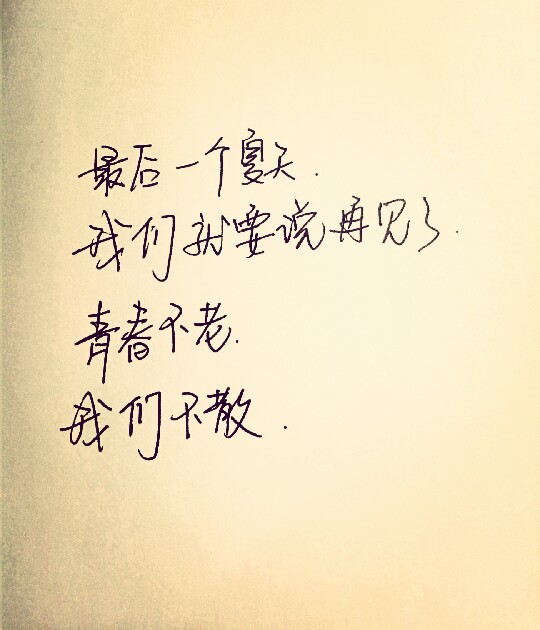 最后一个夏天.
我们就要说再见了.
青春不老.
我们不散.